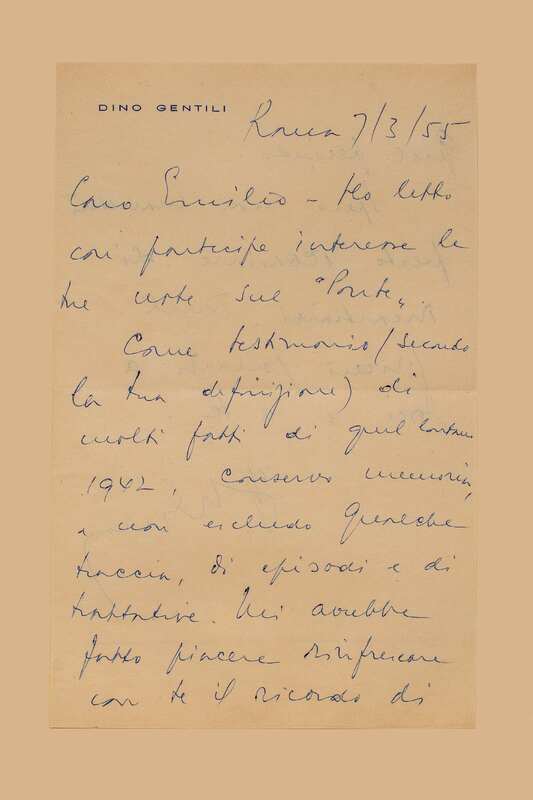 DINO GENTILI
Roma 7/3/55
Caro Emilio - Ho letto
con partecipe interesse le
tue note sul "Ponte"
Come testimonio (secondo
la tua definizione) di
molti fatti di quel lontano
1942, conservo memoria,
e non escludo qualche
traccia, di episodi e di
trattative. Mi avrebbe
fatto piacere rinfrescare
con te il ricordo di